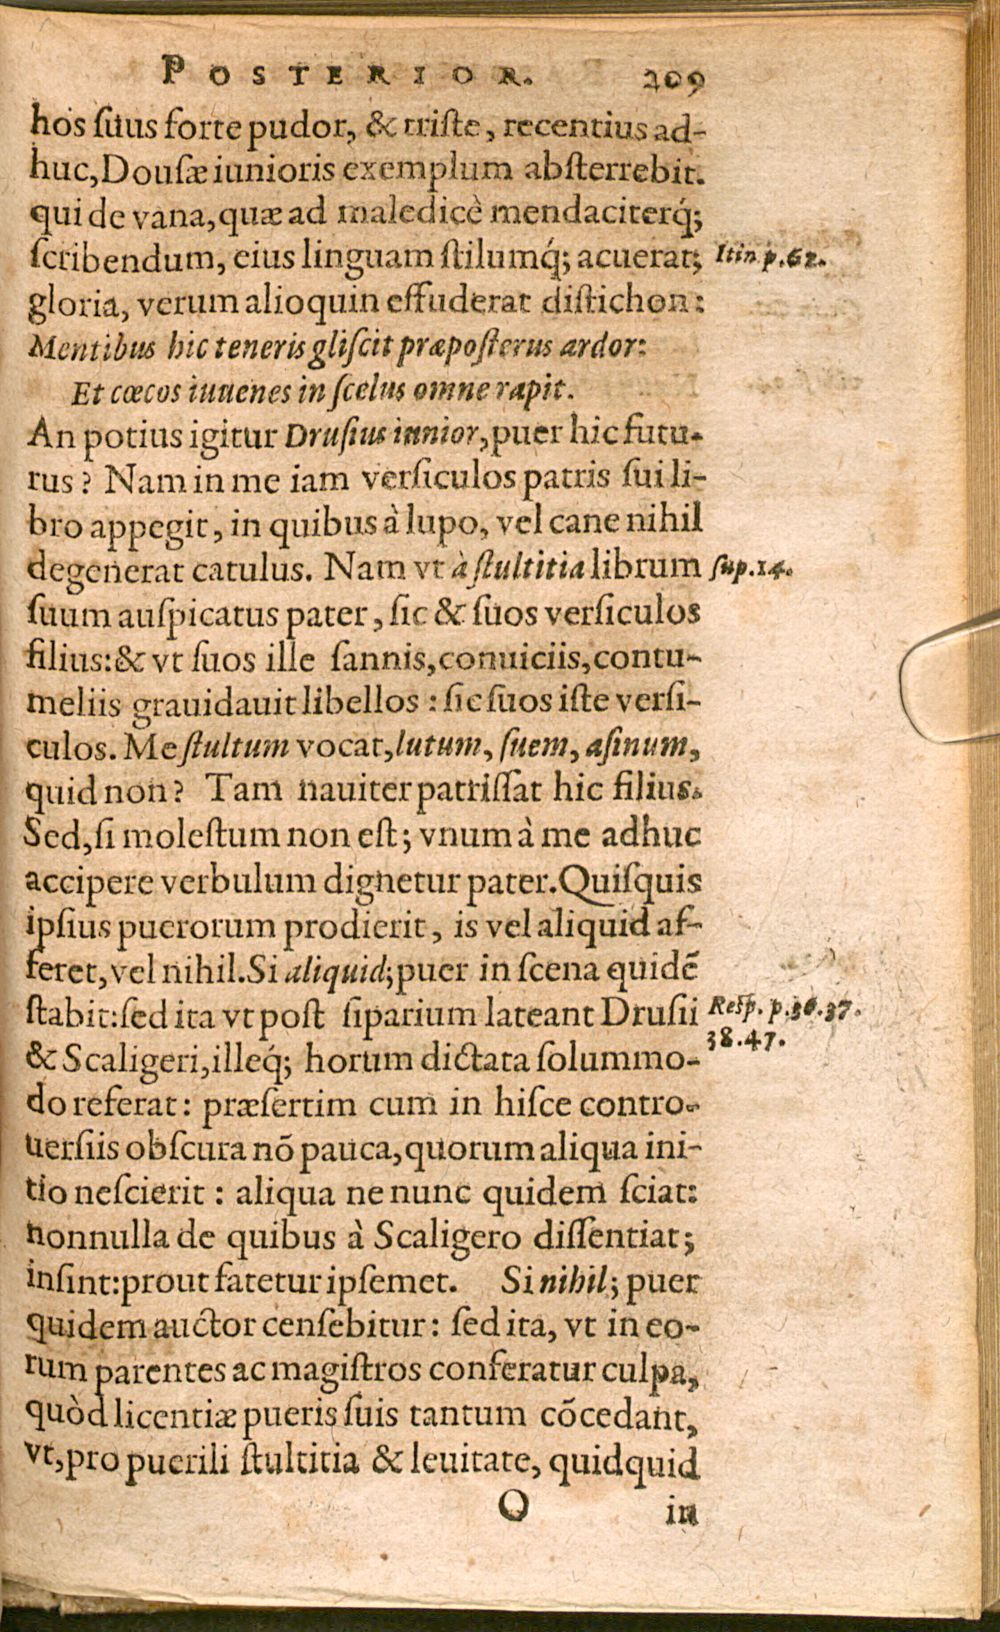 POSTERIOR. 209
hos ſuus forte pudor, & triſte, recentius ad-
huc, Douſæ iunioris exemplum abſterrebit.
qui de vana, quæ ad maledicè mendaciterq́;
ſcribendum, eius linguam ſtilumq́; acuerat; Itin p. 62.
gloria, verum alioquin effuderat diſtichon:
Mentibus hic teneris gliſcit præpoſterus ardor:
Et cœcos iuuenes in ſcelus omne rapit.
An potius igitur Druſius iunior, puer hic futu-
rus? Nam in me iam verſiculos patris ſui li-
bro appegit, in quibus à lupo, vel cane nihil
degenerat catulus. Nam vt à ſtultitia librum ſup. 14.
ſuum auſpicatus pater, ſic & ſuos verſiculos
filius: & vt ſuos ille ſannis, conuiciis, contu-
meliis grauidauit libellos: ſic ſuos iſte verſi-
culos. Me ſtultum vocat, lutum, ſuem, aſinum,
quid non? Tam nauiter patriſſat hic filius.
Sed, ſi moleſtum non eſt; vnum à me adhuc
accipere verbulum dignetur pater. Quiſquis
ipſius puerorum prodierit, is vel aliquid af-
feret, vel nihil. Si aliquid; puer in ſcena quidẽ
ſtabit: ſed ita vt poſt ſiparium lateant Druſii Reſp. p. 36. 37.
& Scaligeri, illeq́; horum dictata ſolummo- 38. 47.
do referat: præſertim cum in hiſce contro-
uerſiis obſcura nõ pauca, quorum aliqua ini-
tio neſcierit: aliqua ne nunc quidem ſciat:
nonnulla de quibus à Scaligero diſſentiat;
inſint: prout fatetur ipſemet. Si nihil; puer
quidem auctor cenſebitur: ſed ita, vt in eo-
rum parentes ac magiſtros conferatur culpa,
quòd licentiæ pueris ſuis tantum cõcedant,
vt, pro puerili ſtultitia & leuitate, quidquid
O in